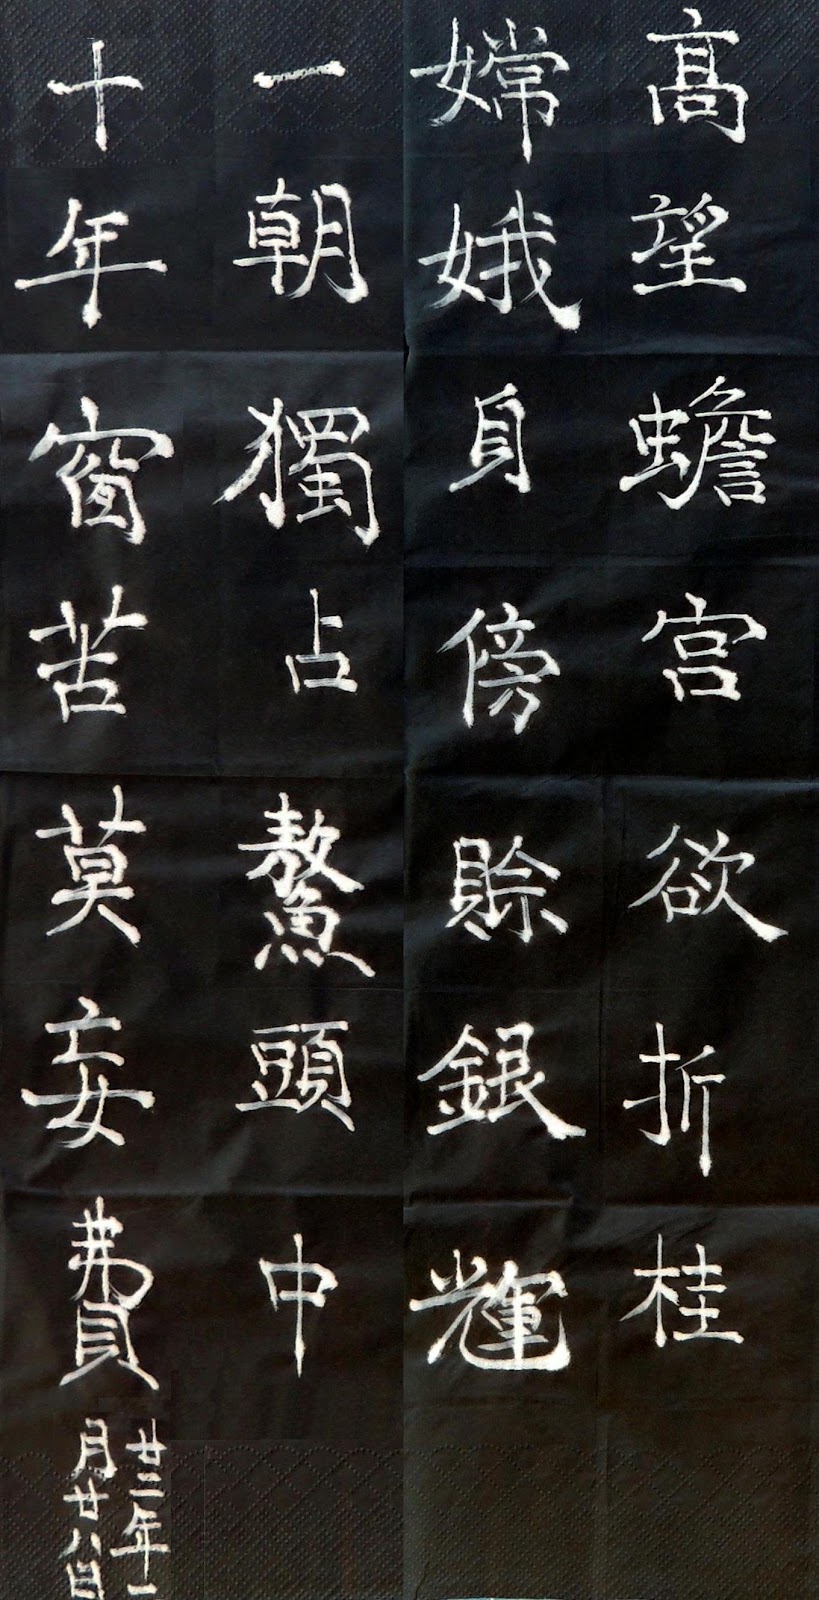 髙望蟾宮欲折桂
嫦娥身傍賒銀輝
一朝獨占鰲頭中
十年窗苦莫妄費
廿三年一
月廿八日